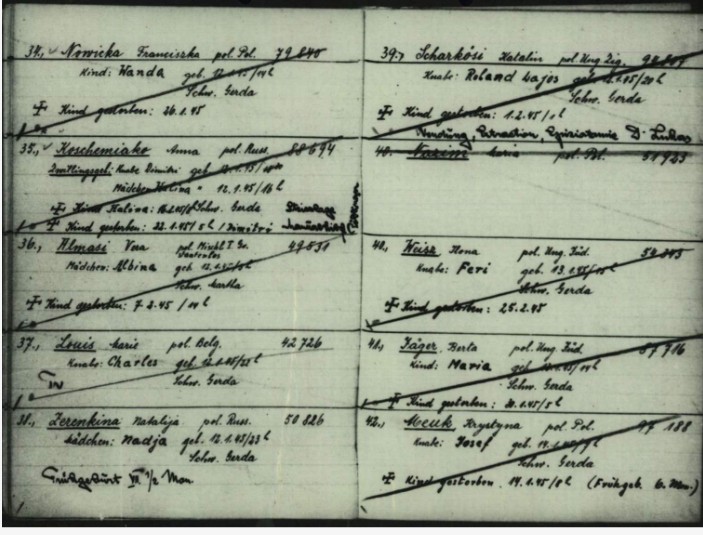 34., Nowicka Franciszka pol. Pol. 79 840
Kind: Wanda geb. 12.1.45/14h
Schw. Gerda
Kind gestorben: 26.1.45
35., Koschemiako Anna pol. Russ. 88 694
Zwillingsgeb: Knabe Dimitri geb.
Mädchen Halina " 12.1.45/16h
Kind Halina: Schw. Gerda
Kind gestorben: 22.1.45/5h / Dimitri
36., Almasi Vera 49 531
Mädchen: Albina geb. 12.1.45
Schw. Martha
Kind gestorben: 7.2.45 /14h
37., Louis Marie pol. Belg. 42 726
Knabe: Charles geb. 12.1.45/22h
Schw. Gerda
38., Zerenkina Natalija pol. Russ. 50 826
Mädchen: Nadja geb. 12.1.45/23h
Schw. Gerda
Frühgeburt VII 1/2 Mon.
39., Scharkösi Katalin pol. Ung. Zig.
Knabe: Roland Lajos geb. 12.1.45/20h
Schw. Gerda
Kind gestorben: 1.2.45/1h
Wendung, Extraction, Episiotomie Dr. Lukas
40. Nazimi Maria pol. Pol. 51 923
40., Weisz Ilona pol. Ung. Jüd.
Knabe: Feri geb. 13.1.45
Schw. Gerda
Kind gestorben: 25.2.45
41., Jäger Berta pol. Ung. Jüd. 87 716
Kind: Maria geb.
Schw. Gerda
Kind gestorben: /5h
42., Meuk Krystyna pol. Pol. 97 188
Knabe: Josef geb. 14.1.45
Schw. Gerda
Kind gestorben 14.1.45/8h (Frühgeb. 6. Mon.)